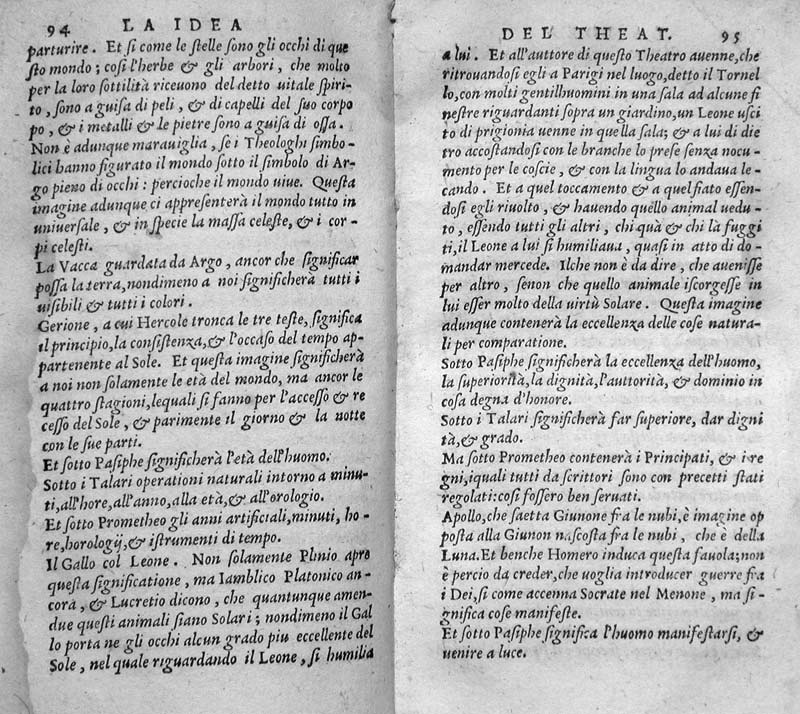 94 LA IDEA
parturire. Et si come le stelle sono gli occhi di que
sto mondo; cosi l'herbe & gli arbori, che molto
per la loro sottilità riceuono del detto uitale spiri-
to, sono a guisa di peli, & di capelli del suo corpo
po, & i metalli & le pietre sono a guisa di ossa.
Non è adunque marauiglia, se i Theologhi simbo-
lici hanno figurato il mondo sotto il simbolo di Ar-
go pieno di occhi: percioche il mondo uiue. Questa
imagine adunque ci appresenterà il mondo tutto in
uniuersale, & in specie la massa celeste, & i cor-
pi celesti.
La Vacca guardata da Argo, ancor che significar
possa la terra, nondimeno a noi significherà tutti i
uisibili & tutti i colori.
Gerione, a cui Hercole tronca le tre teste, significa
il principio, la consistenza, & l'occaso del tempo ap-
partenente al Sole. Et questa imagine significherà
a noi non solamente le età del mondo, ma ancor le
quattro stagioni, lequali si fanno per l'accesso & re
cesso del Sole, & parimente il giorno & la notte
con le sue parti.
Et sotto Pasiphe significherà l'età dell'huomo.
Sotto i Talari operationi naturali intorno a minu-
ti, all'hore, all'anno, alla età, & all'orologio.
Et sotto Prometheo gli anni artificiali, minuti, ho-
re, horologij, & istrumenti di tempo.
Il Gallo col Leone. Non solamente Plinio apre
questa significatione, ma Iamblico Platonico an-
cora, & Lucretio dicono, che quantunque amen-
due questi animali siano Solari; nondimeno il Gal
lo porta ne gli occhi alcun grado piu eccellente del
Sole, nel quale riguardando il Leone, si humilia
DEL THEAT. 95
a lui. Et all'auttore di questo Theatro auenne, che
ritrouandosi egli a Parigi nel luogo, detto il Tornel
lo, con molti gentilhuomini in una sala ad alcune fi
nestre riguardanti sopra un giardino, un Leone usci
to di prigionia uenne in quella sala; & a lui di die
tro accostandosi con le branche lo prese senza nocu-
mento per le coscie, & con la lingua lo andaua le-
cando. Et a quel toccamento & a quel fiato essen-
dosi egli riuolto, & hauendo quello animal uedu-
to, essendo tutti gli altri, chi quà & chi là fuggi
ti, il Leone a lui si humiliaua, quasi in atto di do-
mandar mercede. Ilche non è da dire, che auenisse
per altro, senon che quello animale iscorgesse in
lui esser molto della uirtù Solare. Questa imagine
adunque contenerà la eccellenza delle cose natura-
li per comparatione.
Sotto Pasiphe significherà la eccellenza dell'huomo,
la superiorità, la dignità, l'auttorità, & dominio in
cosa degna d'honore.
Sotto i Talari significherà far superiore, dar digni
tà, & grado.
Ma sotto Prometheo contenerà i Principati, & i re
gni, iquali tutti da scrittori sono con precetti stati
regolati: cosi fossero ben seruati.
Apollo, che saetta Giunone fra le nubi, è imagine op
posta alla Giunon nascosta fra le nubi, che è della
Luna. Et benche Homero induca questa fauola; non
è percio da creder, che uoglia introducer guerre fra
i Dei, si come accenna Socrate nel Menone, ma si-
gnifica cose manifeste.
Et sotto Pasiphe significa l'huomo manifestarsi, &
uenire a luce.